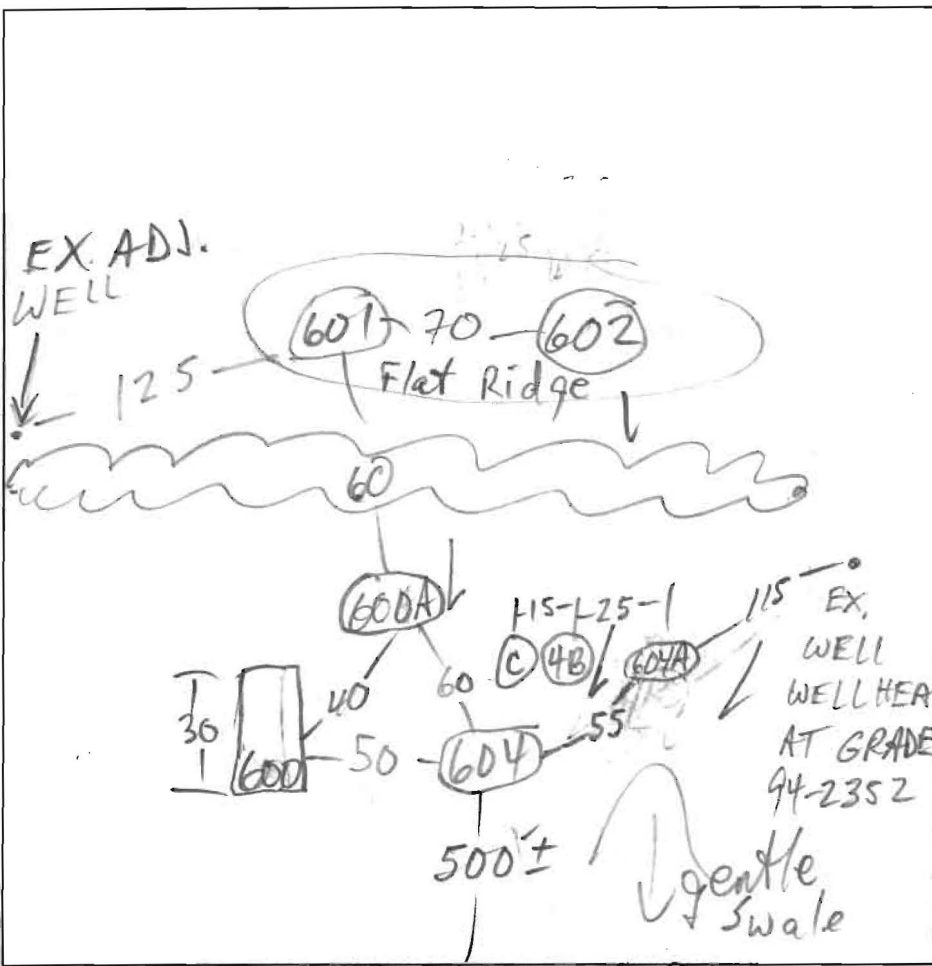 EX. ADJ.
WELL
601 - 70 - 602
125
Flat Ridge
60
600A
15 - 25
115
C
4B
604A
EX.
WELL
WELLHEA
AT GRADE
94-2352
40
60
55
30
600
50
604
500'±
gentle
swale